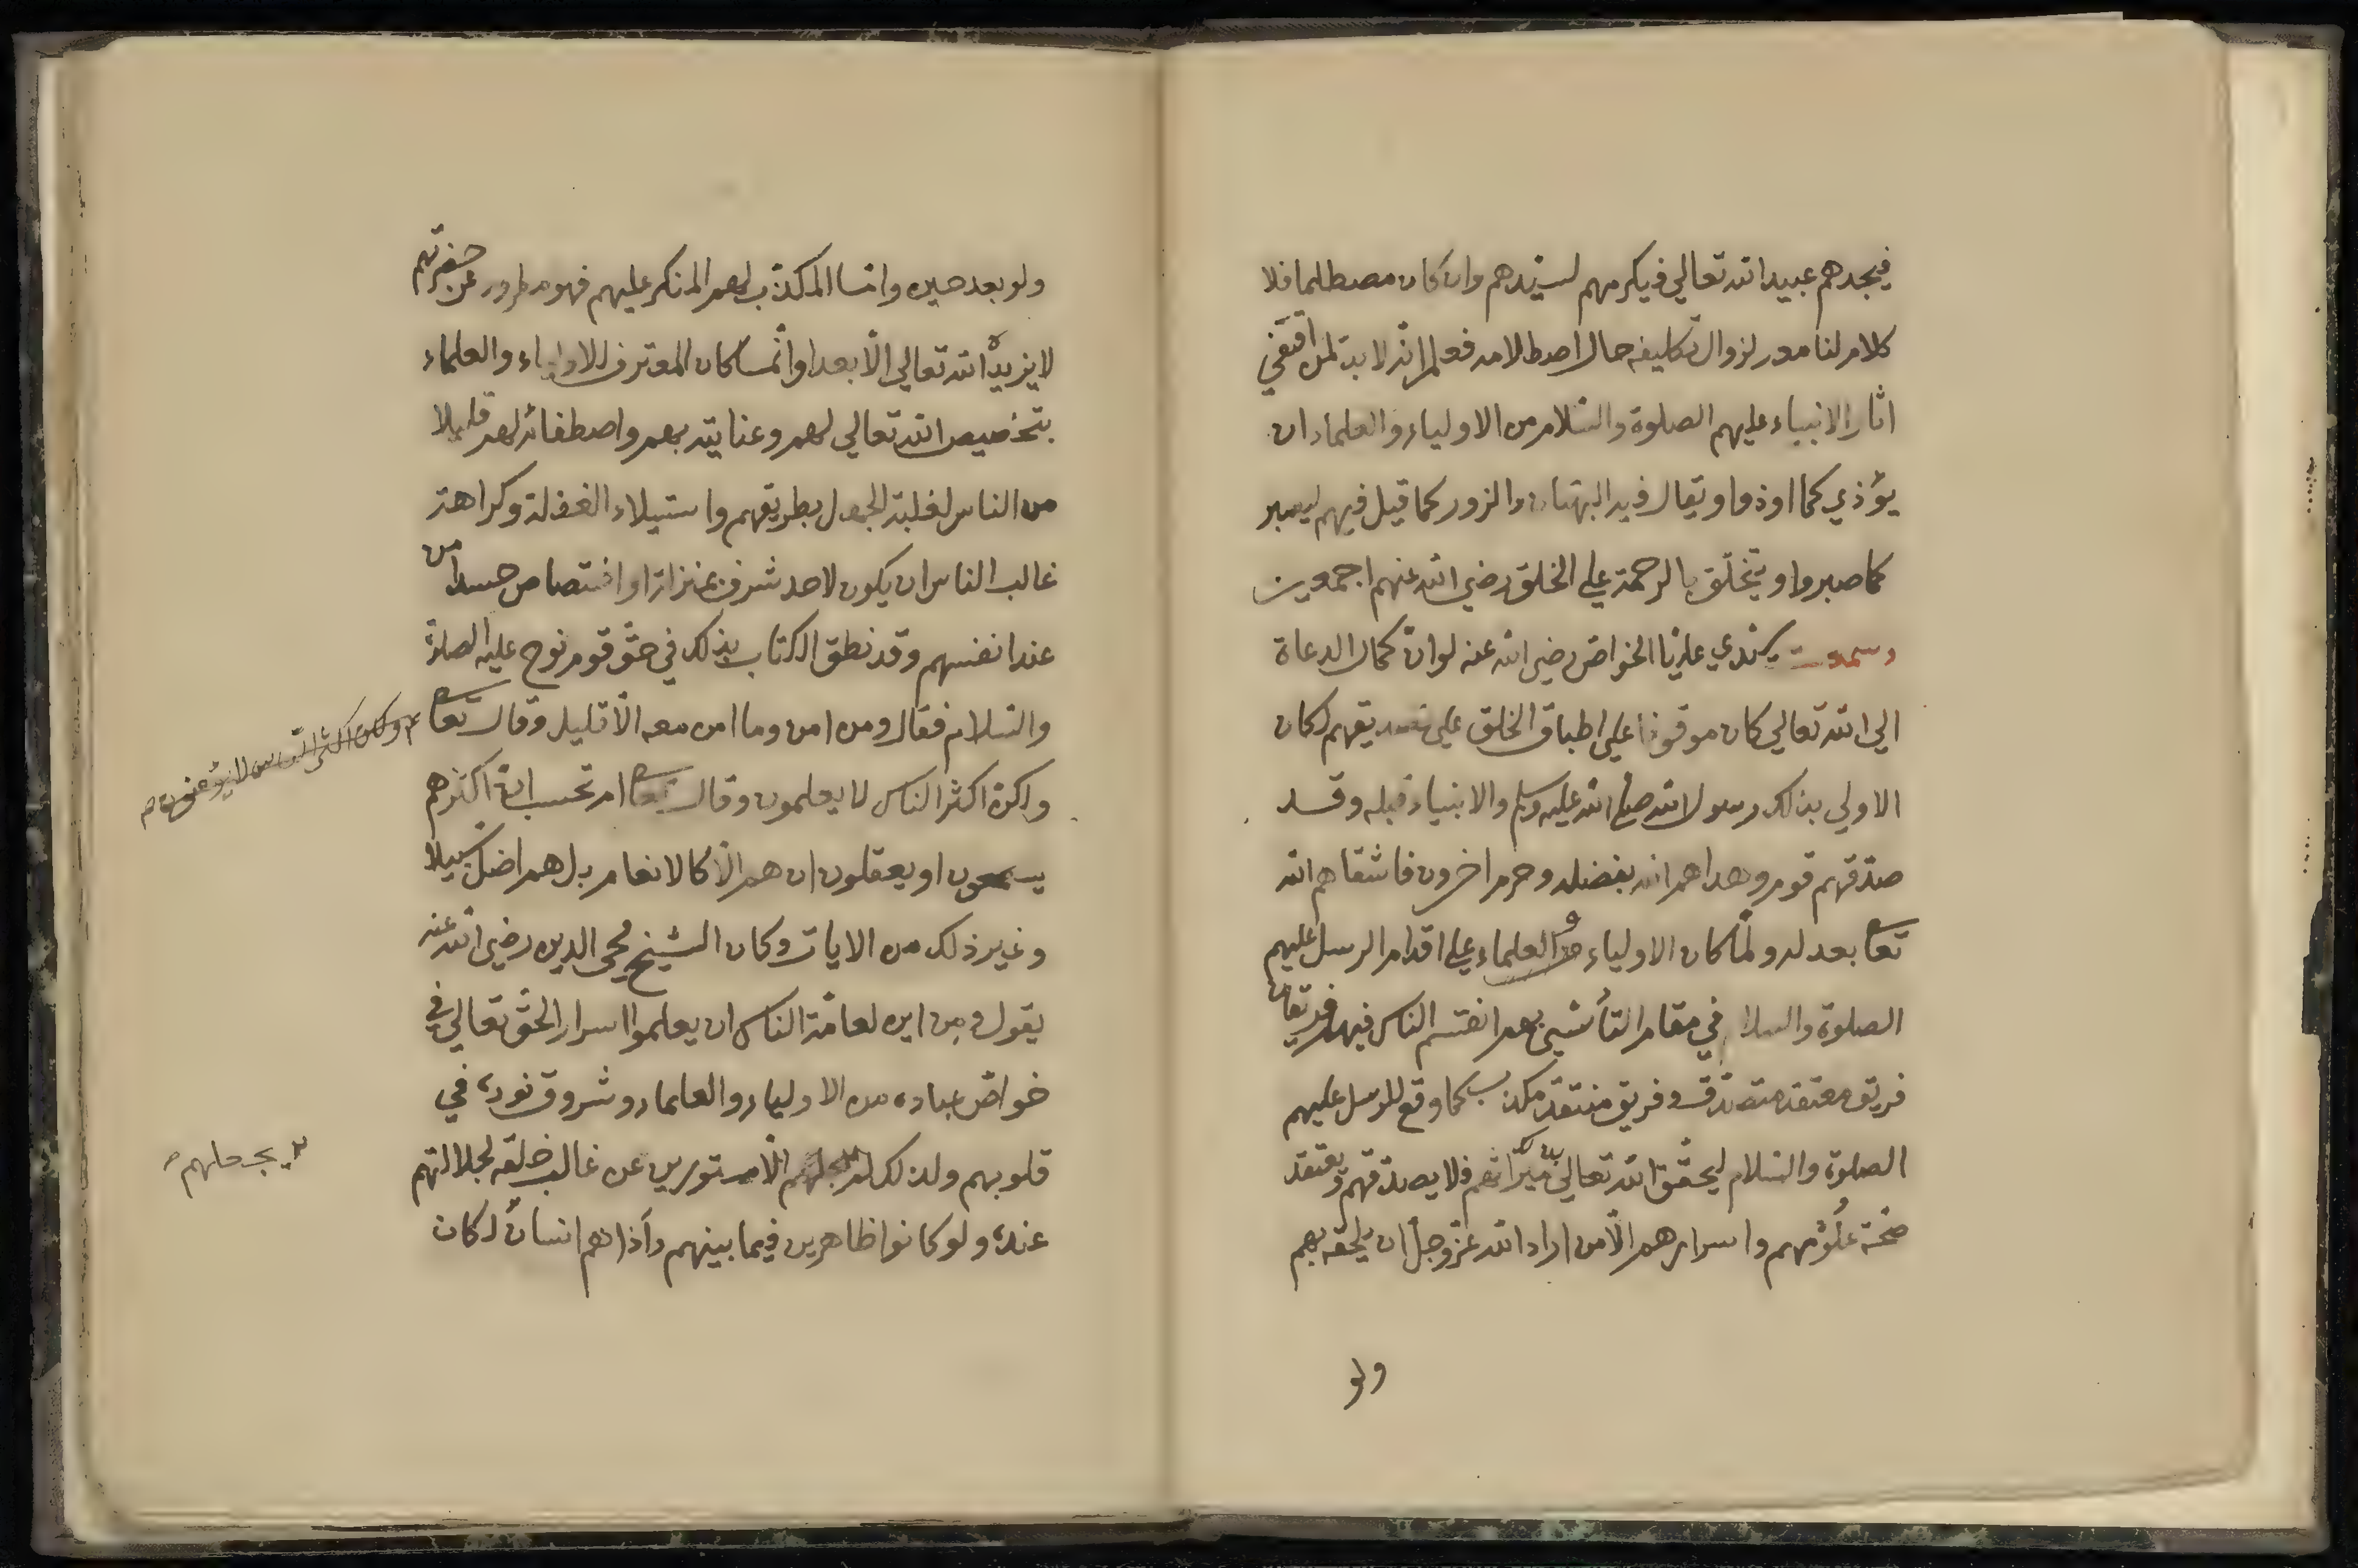 فيجدهم عبيد الله تعالي فيكرمهم لسيدهم وان كان مصطلما فلا
كلام لنا معه لزوال تكليفه حال اصطلامه فعلم انه لا بد لمن اقتفي
اثار الانبياء عليهم الصلوة والسلام من الاولياء والعلماء ان
يؤذي كما اوذوا ويقال فيه البهتان والزور كما قيل فيهم ليصبر
كما صبروا ويتخلق بالرحمة علي الخلق رضي الله عنهم اجمعين
وسمعت سيدي عليا الخواص رضي الله عنه لو ان كمال الدعاة
الي الله تعالي كان موقوفا علي اطباق الخلق علي تصديقهم لكان
الاولي بذلك رسول الله صلي الله عليه وسلم والانبياء قبله وقد
صدقهم قوم وهداهم الله بفضله وحرم اخرون فاشقاهم الله
تعا بعدله ولما كان الاولياء والعلماء علي اقدام الرسل عليهم
الصلوة والسلام في مقام التأسي بهم انقسم الناس فيهم فريقا
فريق معتقد مصدق وفريق منتقد مكذب كما وقع للرسل عليهم
الصلوة والسلام ليحقق الله تعالي ميراثهم فلا يصدقهم ويعتقد
صحة علومهم واسرارهم الا من اراد الله عز وجل ان يلحقه بهم
ولو
ولو بعد حين واما المكذب لهم المنكر عليهم فهو مطرود عن حضرتهم
لا يزيده الله تعالي الا بعدا وانما كان المعترف للاولياء والعلماء
بتخصيص الله تعالي لهم وعنايته بهم واصطفائه لهم قليلا
من الناس لغلبة الجهل بطريقهم واستيلاء الغفلة وكراهة
غالب الناس ان يكون لاحد شرف بمنزلة او اختصاص حسدا من
عند انفسهم وقد نطق الكتاب بذلك في حق قوم نوح عليه الصلوة
والسلام فقال ومن امن وما امن معه الا قليل وقال تعا
ولكن اكثر الناس لا يؤمنون
ولكن اكثر الناس لا يعلمون وقال تعا ام تحسب ان اكثرهم
يسمعون او يعقلون ان هم الا كالانعام بل هم اضل سبيلا
وغير ذلك من الايات وكان الشيخ محي الدين رضي الله عنه
يقول ومن اين لعامة الناس ان يعلموا اسرار الحق تعالي في
خواص عباده من الاولياء والعلماء وشروق نوره في
قلوبهم ولذلك لم يجعلهم الا مستورين عن غالب خلقه لجلالتهم
يجعلهم
عنده ولو كانوا ظاهرين فيما بينهم وآذاهم انسان لكان